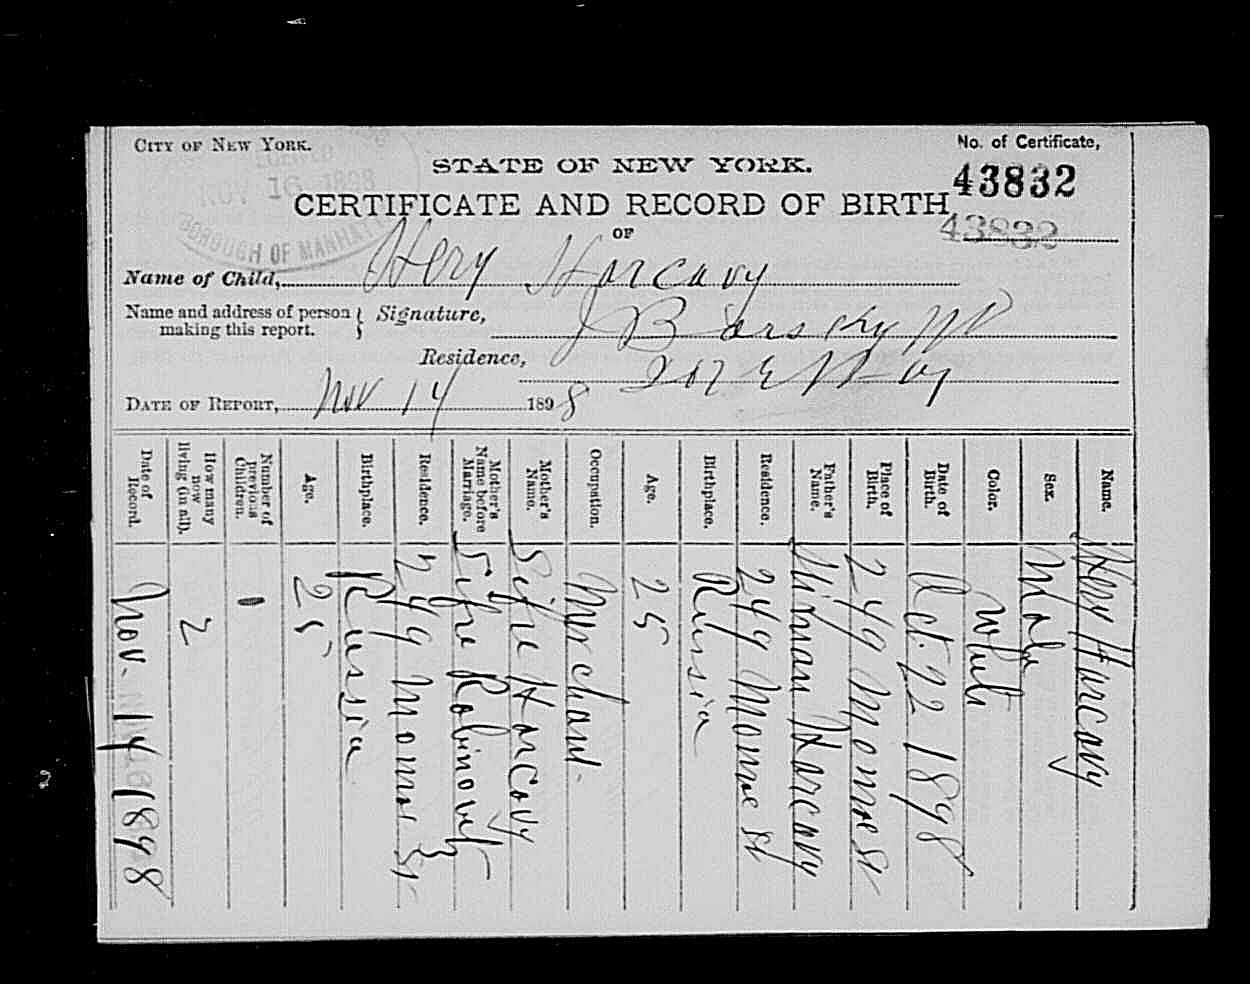 CITY OF NEW YORK.
No. of Certificate,
STATE OF NEW YORK.
43832
NOV 16 1898
CERTIFICATE AND RECORD OF BIRTH
43832
BOROUGH OF MANHATTAN
OF
Name of Child, Hery Harcavy
Name and address of person making this report. } Signature, J Barsky MD
Residence, 207 E
DATE OF REPORT, Nov 14 1898
Name. Hery Harcavy
Sex. Male
Color. White
Date of Birth. Oct. 22 1898
Place of Birth. 249 Monroe St
Father's Name. Harcavy
Residence. 249 Monroe St
Birthplace. Russia
Age. 25
Occupation. Merchant.
Mother's Name. Sifre Harcavy
Mother's Name before Marriage. Sifre Robinovitz
Residence. 249 Monroe St
Birthplace. Russia
Age. 25
Number of previous Children. 1
How many now living (in all). 2
Date of Record. Nov. 14 1898